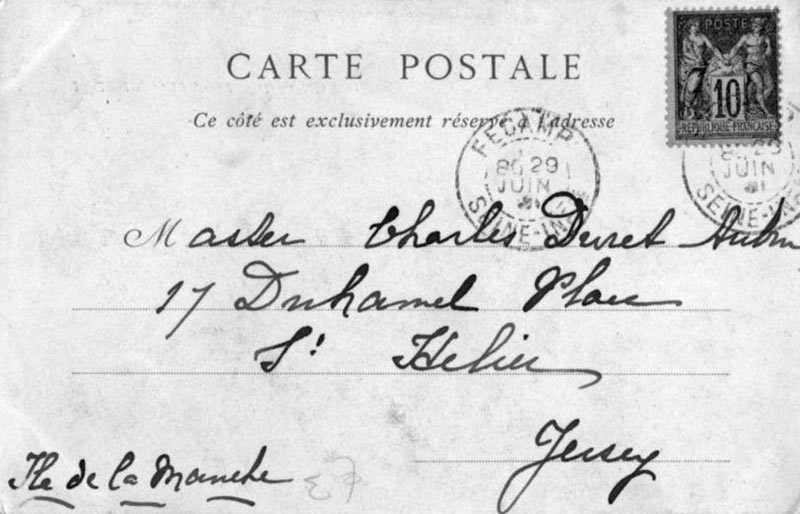 CARTE POSTALE
Ce côté est exclusivement réservé à l'adresse
POSTE
10
REPUBLIQUE FRANÇAISE
FECAMP
29
JUIN
SEINE-INF
29
JUIN
SEINE-INF
Master Charles Duret Aubin
17 Duhamel Place
St Helier
Jersey
Ile de la Manche